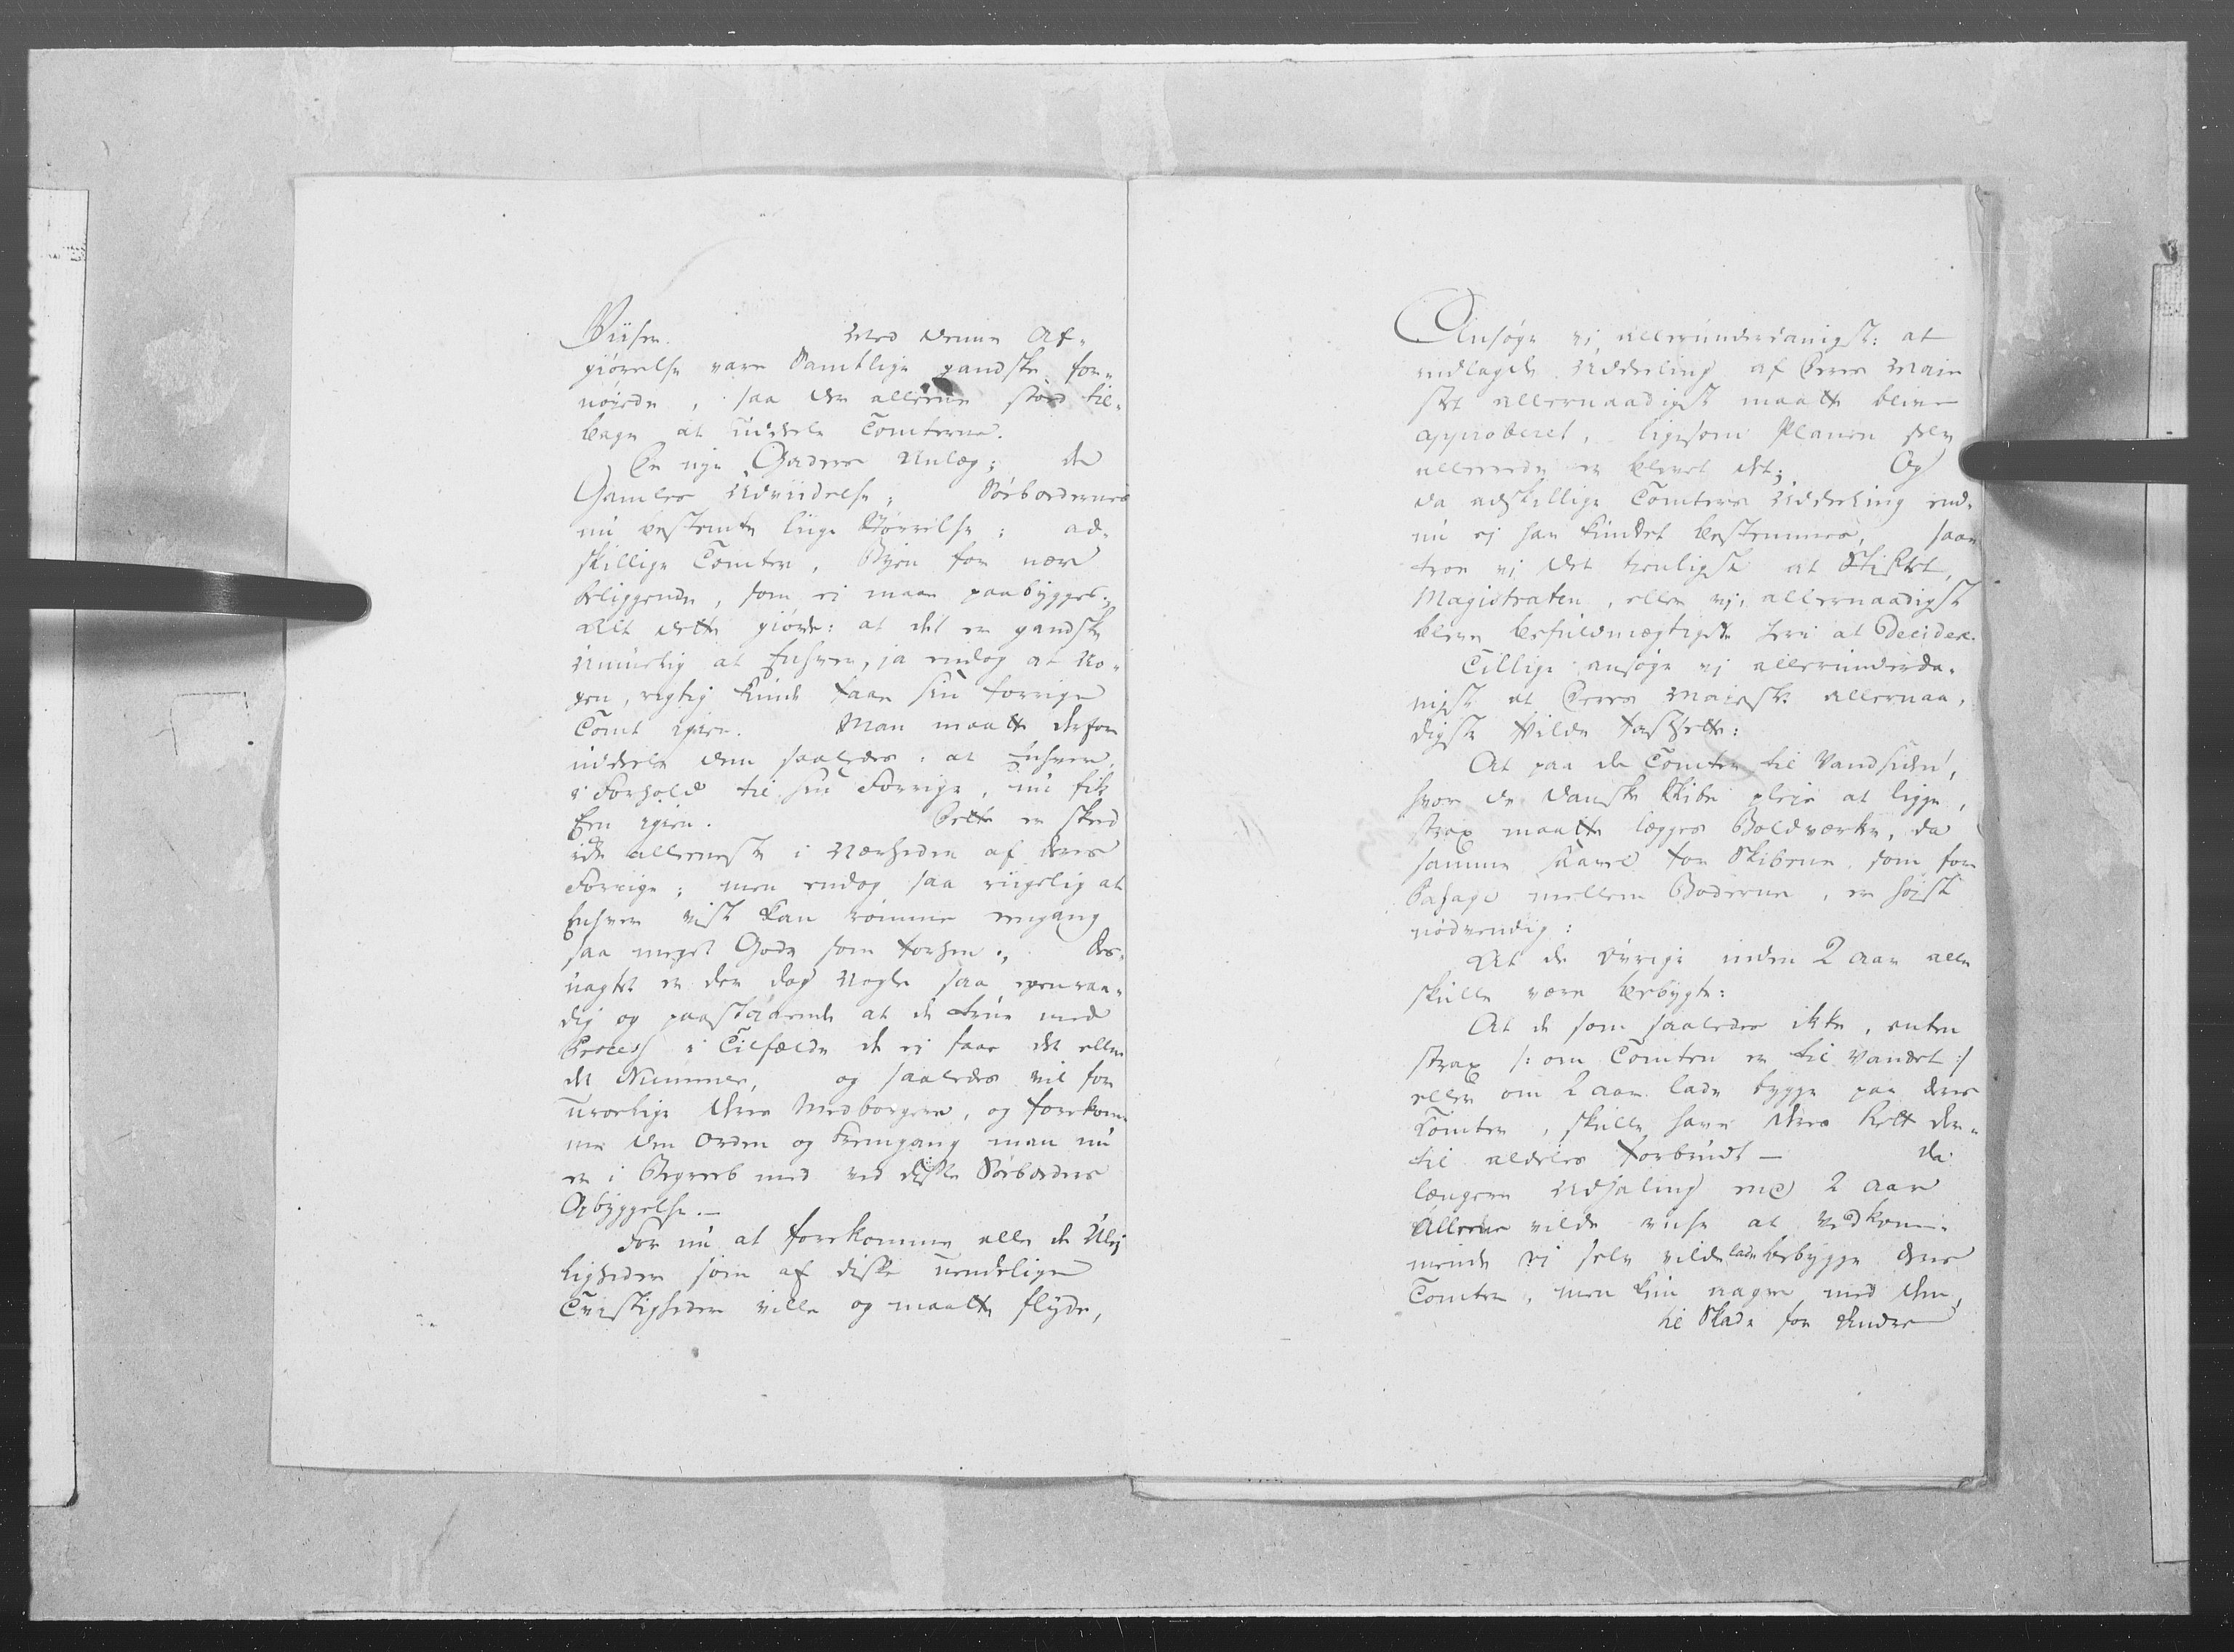 Viiser. Med denne Af-
giörelse vare Samtlige gandske for-
nöyede, saa der alleene stod til-
bage at uddele Tomterne.
De nye Gaders Anlæg; de
Gamles Udviidelse; Söebodernes
nu bestemte liige Störrelse; ad-
skillige Tomter, Byen for nær
beliggende, som ei maae paabygges;
alt dette giorde: at det er gandske
Umuelig at Enhver, ja endog at No-
gen, rigtig kunde faae sin forrige
Tomt igien. Man maatte derfor
uddele dem saaledes: at Enhver,
i Forhold til sin Forrige, nu fik
Een igien. Dette er skeed
ikke alleneste i Nærheden af deres
Forrige; men endog saa riigelig at
Enhver vist kan römme engang
saa meget Gods som forhen; des-
uagtet er der dog Nogle saa egenraa-
dig og paastaaende at de true med
Process i Tilfælde de ej faae det eller
det Nummer, og saaledes vil for-
uroelige deres Medborgere, og forekom-
me den Orden og Fremgang man nu
er i Begreb med ved disse Söeboders
Opbyggelse.-
For nu at forekomme alle de Ulej
ligheder som af disse uendelige
Tvistigheder ville og maatte flyde,
Ansöge vi allerunderdanigst: at
indlagde Uddeeling af Deres Maje
stet allernaadigst maatte blive
approberet, ligesom Planen selv
allerede er blevet det; Og
da adskillige Tomters Uddeeling end-
nu ej har kundet bestemmes, saa
troe vi det tienligst at Stiftet,
Magistraten, eller vi, allernaadigst
bliver befuldmægtiget heri at Decidere.
Tillige ansöge vi allerunderda-
nigst at Deres Majestet allernaa-
digst Vilde fastsette:
At paa de Tomter til Vandsiden,
hvor de danske Skibe pleje at ligge,
strax maatte lægges Boldværker, da
samme saavel for Skibene som for
Pasage mellem Boderne, er höjst
nödvendig:
At de övrige inden 2 Aar alle
skulle være bebygte:
At de som saaledes ikke, enten
strax /: om Tomten er til Vandet :/
eller om 2 Aar lade bygge paa deres
Tomter, skulle have deres Rett der-
til aldeles forbrudt - da
længere Udhaling end 2 Aar
Alleene vilde viise at Vedkom-
mende ej selv vilde lade bebygge deres
Tomter, men kun aagre med dem,
til Skade for Andre